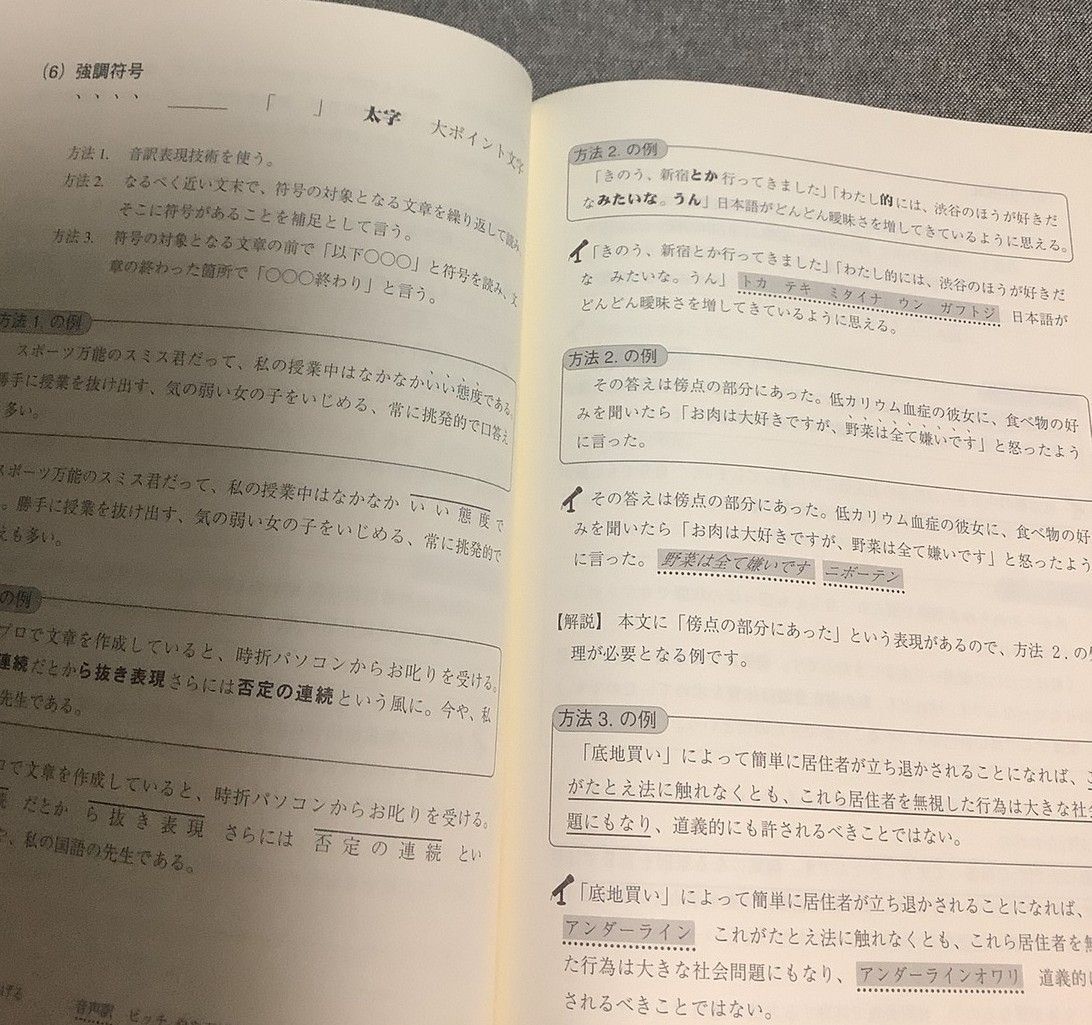 (6) 強調符号
、、、、 ＿＿＿ 「 」 太字 大ポイント文字
方法1. 音訳表現技術を使う。
方法2. なるべく近い文末で、符号の対象となる文章を繰り返して読み、
そこに符号があることを補足として言う。
方法3. 符号の対象となる文章の前で「以下○○○」と符号を読み、文
章の終わった箇所で「○○○終わり」と言う。
方法1. の例
スポーツ万能のスミス君だって、私の授業中はなかなかいい態度である。
勝手に授業を抜け出す、気の弱い女の子をいじめる、常に挑発的で口答え
多い。
スポーツ万能のスミス君だって、私の授業中はなかなか いい態度で
。勝手に授業を抜け出す、気の弱い女の子をいじめる、常に挑発的で
えも多い。
の例
プロで文章を作成していると、時折パソコンからお叱りを受ける。
連続だとから抜き表現さらには否定の連続という風に。今や、私
先生である。
ロで文章を作成していると、時折パソコンからお叱りを受ける。
だとか ら抜き表現 さらには 否定の連続 とい
や、私の国語の先生である。
げる
音声訳 ピッチ
方法2. の例
「きのう、新宿とか行ってきました」「わたし的には、渋谷のほうが好きだ
なみたいな。うん」日本語がどんどん曖昧さを増してきているように思える。
イ「きのう、新宿とか行ってきました」「わたし的には、渋谷のほうが好きだ
な みたいな。うん」 トカ テキ ミタイナ ウン ガフトジ 日本語が
どんどん曖昧さを増してきているように思える。
方法2. の例
その答えは傍点の部分にあった。低カリウム血症の彼女に、食べ物の好
みを聞いたら「お肉は大好きですが、野菜は全て嫌いです」と怒ったよう
に言った。
イ その答えは傍点の部分にあった。低カリウム血症の彼女に、食べ物の好
みを聞いたら「お肉は大好きですが、野菜は全て嫌いです」と怒ったよう
に言った。 野菜は全て嫌いです ニボーテン
【解説】 本文に「傍点の部分にあった」という表現があるので、方法 2. の
理が必要となる例です。
方法3. の例
「底地買い」によって簡単に居住者が立ち退かされることになれば、
がたとえ法に触れなくとも、これら居住者を無視した行為は大きな社
題にもなり、道義的にも許されるべきことではない。
イ「底地買い」によって簡単に居住者が立ち退かされることになれば、
アンダーライン これがたとえ法に触れなくとも、これら居住者を無
た行為は大きな社会問題にもなり、 アンダーラインオワリ 道義的
されるべきことではない。